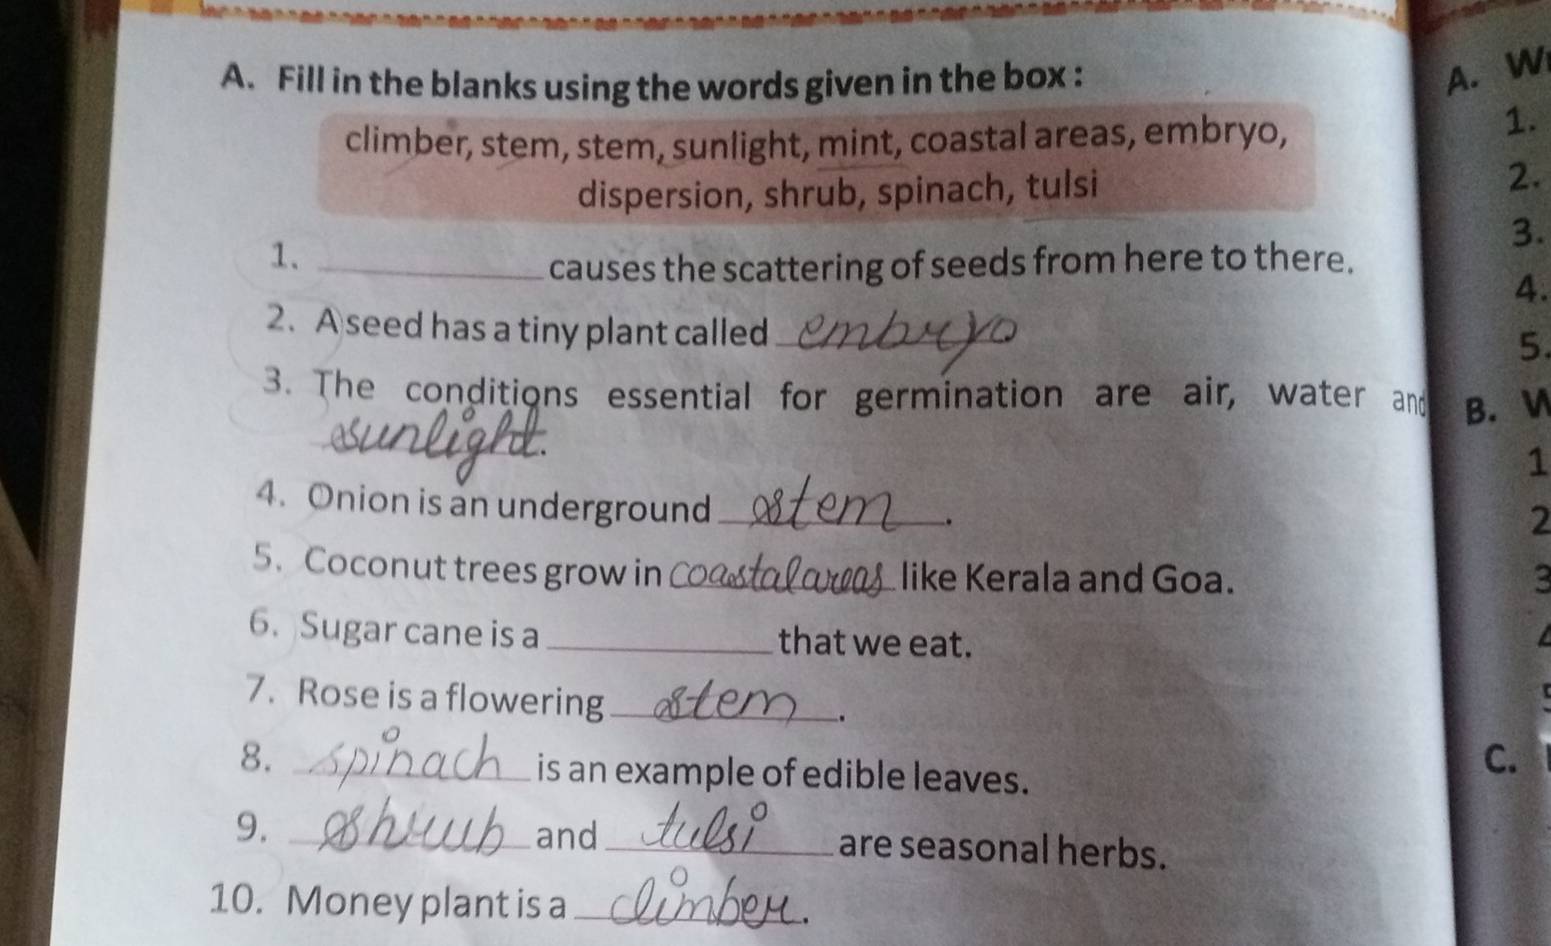 A. Fill in the blanks using the words given in the box :
climber, stem, stem, sunlight, mint, coastal areas, embryo,
dispersion, shrub, spinach, tulsi
1. ____________ causes the scattering of seeds from here to there.
2. A seed has a tiny plant called embryo
3. The conditions essential for germination are air, water and
sunlight.
4. Onion is an underground stem.
5. Coconut trees grow in coastal areas like Kerala and Goa.
6. Sugar cane is a ____________ that we eat.
7. Rose is a flowering stem.
8. spinach is an example of edible leaves.
9. shrub and tulsi are seasonal herbs.
10. Money plant is a climber.
A.
1.
2.
3.
4.
5.
B.
1
2
3
C.